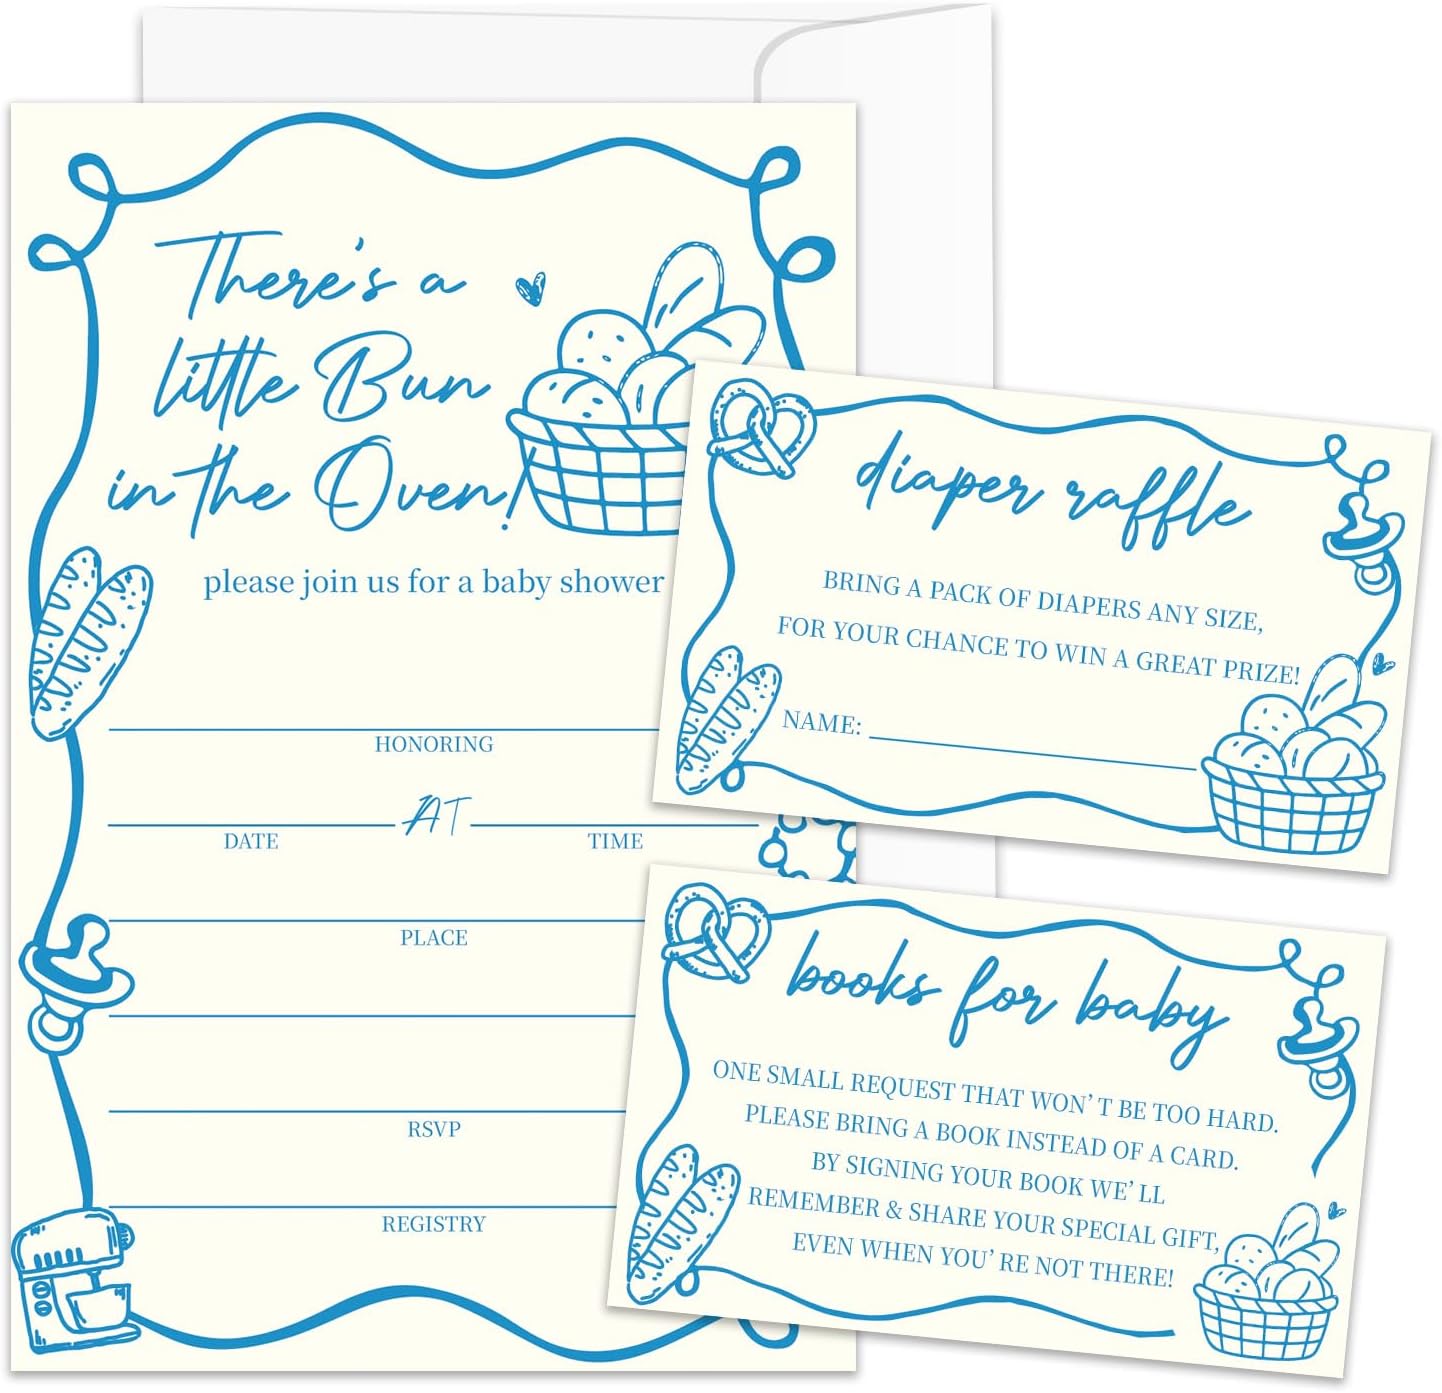 There's a
little Bun
in the Oven!
please join us for a baby shower
HONORING
AT
DATE TIME
PLACE
RSVP
REGISTRY
diaper raffle
BRING A PACK OF DIAPERS ANY SIZE,
FOR YOUR CHANCE TO WIN A GREAT PRIZE!
NAME:
books for baby
ONE SMALL REQUEST THAT WON'T BE TOO HARD.
PLEASE BRING A BOOK INSTEAD OF A CARD.
BY SIGNING YOUR BOOK WE'LL
REMEMBER & SHARE YOUR SPECIAL GIFT,
EVEN WHEN YOU'RE NOT THERE!